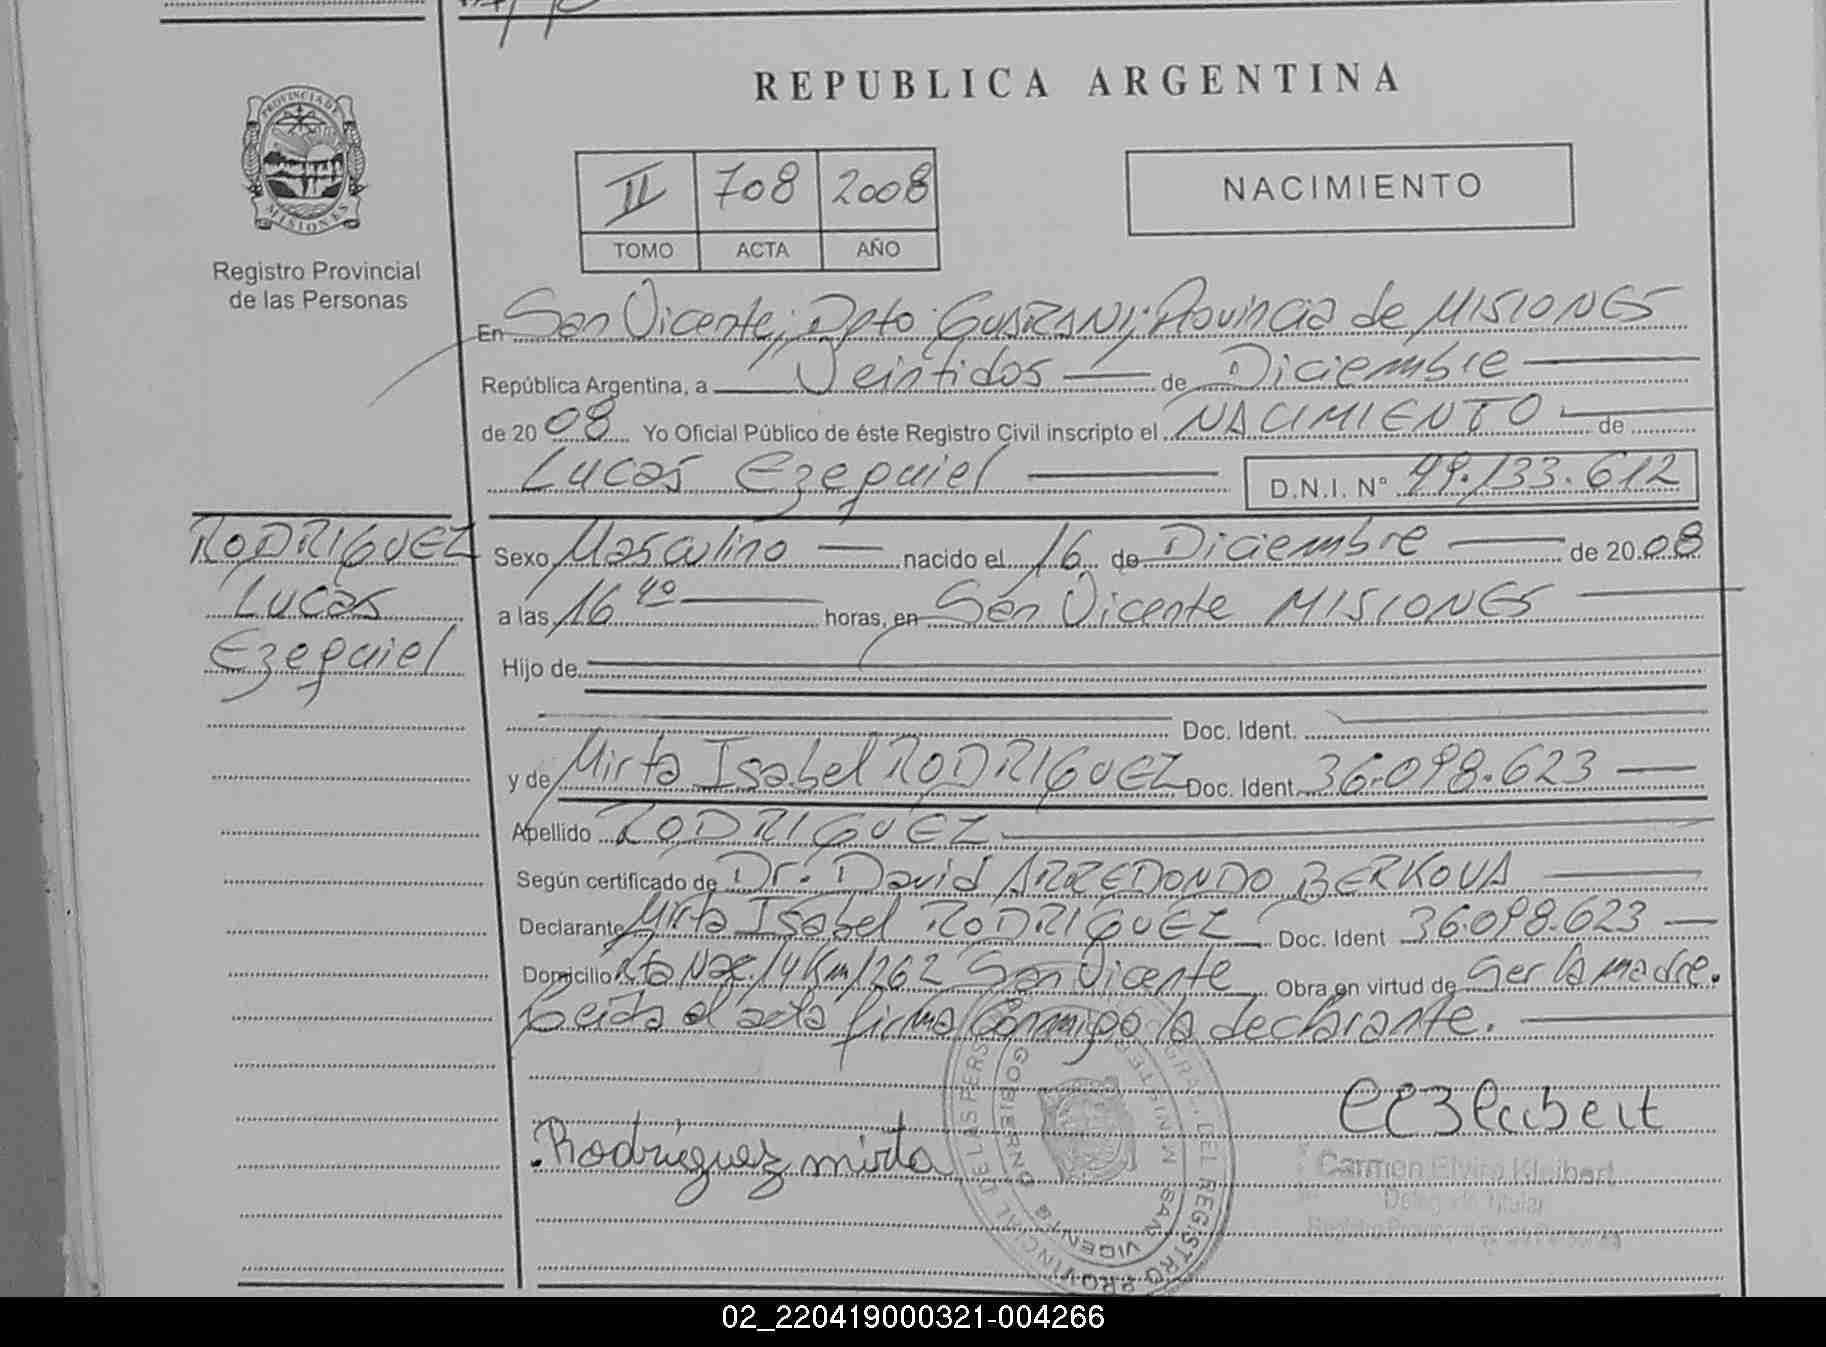 REPUBLICA ARGENTINA
PROVINCIA DE
MISIONES
Registro Provincial
de las Personas
II 708 2008
TOMO ACTA AÑO
NACIMIENTO
En San Vicente, Dpto GUARANI; Provincia de MISIONES
República Argentina, a Veintidos de Diciembre
de 20 08 Yo Oficial Público de éste Registro Civil inscripto el NACIMIENTO de
Lucas Ezequiel D.N.I. Nº 49.133.612
RODRIGUEZ
Lucas
Ezequiel
Sexo Masculino nacido el 16 de Diciembre de 20 08
a las 16 40 horas, en San Vicente MISIONES
Hijo de
Doc. Ident.
y de Mirta Isabel RODRIGUEZ Doc. Ident. 36.098.623
Apellido RODRIGUEZ
Según certificado de Dr. David ARREDONDO BERKOVA
Declarante Mirta Isabel RODRIGUEZ Doc. Ident 36.098.623
Domicilio Rta Nac. 14 Km 1262 San Vicente Obra en virtud de Ser la madre.
Leida el acta firma Conmigo la declarante.
Rodriguez mirta
Carmen Elvira Kleibert
Delegada Titular
Registro Provincial de las Personas
REGISTRO PROVINCIAL DE LAS PERS
GOBIERNO
SAN VICENTE
02_220419000321-004266